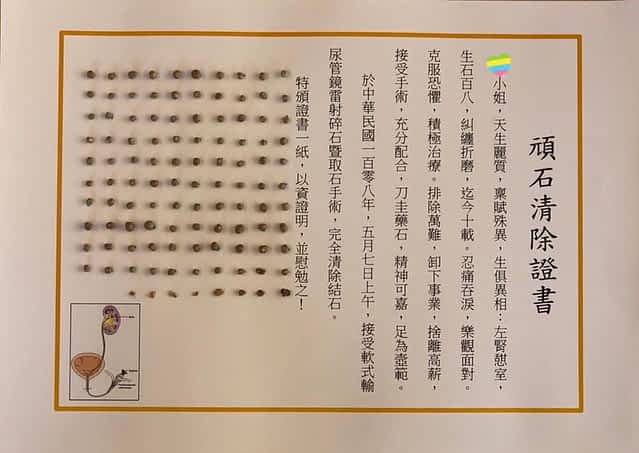 頑石清除證書
小姐，天生麗質，稟賦殊異，生俱異相：左腎憩室，
生石百八，糾纏折磨，迄今十載。忍痛吞淚，樂觀面對。
克服恐懼，積極治療。排除萬難，卸下事業，捨離高薪，
接受手術，充分配合，刀圭藥石，精神可嘉，足為壼範。
於中華民國一百零八年，五月七日上午，接受軟式輸
尿管鏡雷射碎石暨取石手術，完全清除結石。
特頒證書一紙，以資證明，並慰勉之！